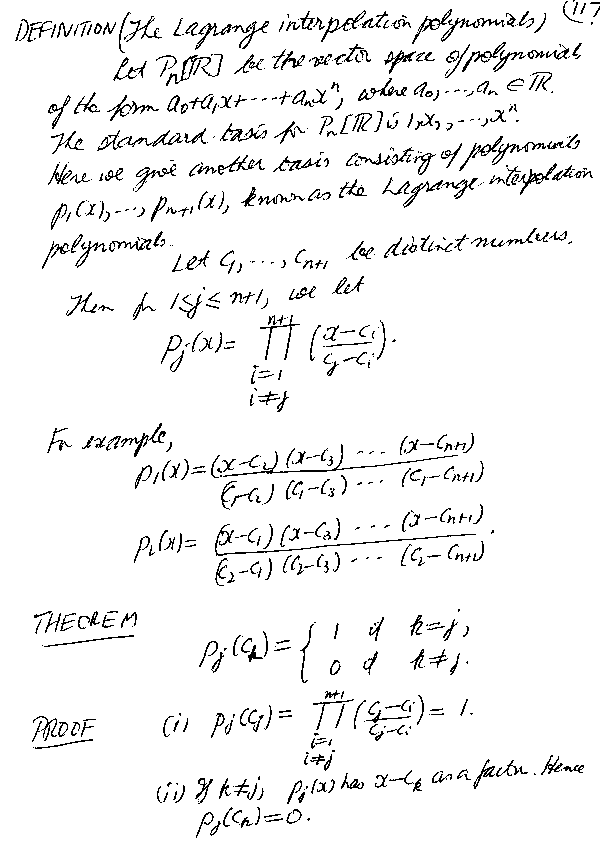 DEFINITION (The Lagrange interpolation polynomials) 117
Let Pn[ℝ] be the vector space of polynomials
of the form a0+a1x+⋯+anxⁿ, where a0,⋯,an ∈ ℝ.
The standard basis for Pn[ℝ] is 1,x,⋯,xⁿ.
Here we give another basis consisting of polynomials
p1(x),⋯,pn+1(x), known as the Lagrange interpolation
polynomials.
Let c1,⋯,cn+1 be distinct numbers.
Then for 1≤j≤n+1, we let
pj(x)= ∏_{i=1, i≠j}^{n+1} ((x−ci)/(cj−ci)).
For example,
p1(x)= (x−c2)(x−c3)⋯(x−cn+1) / (c1−c2)(c1−c3)⋯(c1−cn+1)
p2(x)= (x−c1)(x−c3)⋯(x−cn+1) / (c2−c1)(c2−c3)⋯(c2−cn+1).
THEOREM
pj(ck)= { 1 if k=j,
0 if k≠j.
PROOF (i) pj(cj)= ∏_{i=1, i≠j}^{n+1} ((cj−ci)/(cj−ci)) = 1.
(ii) If k≠j, pj(x) has x−ck as a factor. Hence
pj(ck)=0.